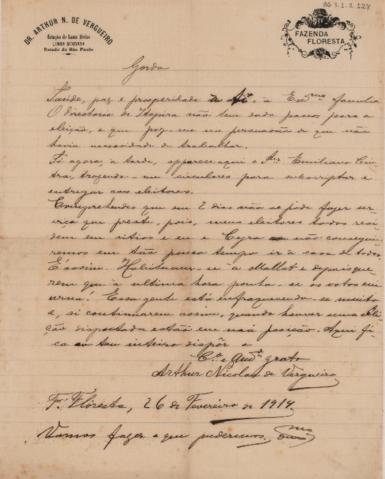 AG 3.1.2.128
DR. ARTHUR N. DE VERGUEIRO
Estação de Santo
LINHA MOGYANA
Estado de São Paulo
FAZENDA
FLORESTA
Gordo
Saude, paz e prosperidade a ti, a Exma familia
O directorio de Itapira não tem dado passos para a
eleição, o que fez-me na persuasão de que não
havia necessidade de trabalhar.
Só agora, a tarde, apparece aqui o Snr Emiliano Cin
tra, trazendo-me circulares para subscriptar e
entregar aos eleitores.
Comprehendes que em 2 dias não se pode fazer ser
viço que preste, pois, meus eleitores todos resi
dem em sitios e eu e Cyro não consegui
remos em tão pouco tempo ir á casa de todos.
É assim.
rem que a ultima hora ponha-se os votos em
urna! Essa gente está enfraquecendo-se muito
e, si continuarem assim, quando houver uma elei
ção disputada estão em má posição. Aqui fi
ca ao teu inteiro dispôr o
Co e Amo grato
Arthur Nicolau de Vergueiro
F. Floresta, 26 de Fevereiro de 1914.
Vamos fazer o que pudermos,